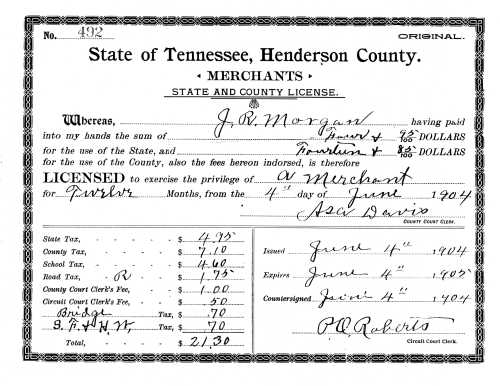 No. 492 ORIGINAL.
State of Tennessee, Henderson County.
MERCHANTS
STATE AND COUNTY LICENSE.
Whereas, J. R. Morgan having paid
into my hands the sum of Four & 95/100 DOLLARS
for the use of the State, and Fourteen & 85/100 DOLLARS
for the use of the County, also the fees hereon indorsed, is therefore
LICENSED to exercise the privilege of a Merchant
for Twelve Months, from the 4" day of June 1904
Asa Davis
COUNTY COURT CLERK.
State Tax, $ 4.95
County Tax, $ 7.10
School Tax, $ 4.60
Road Tax, R $ 1.75
County Court Clerk's Fee, $ 1.00
Circuit Court Clerk's Fee, $ 50
Bridge Tax, $ .70
Tax, $ 70
Total, $ 21.30
Issued June 4" 1904
Expires June 4" 1905
Countersigned June 4" 1904
P.O. Roberts
Circuit Court Clerk.